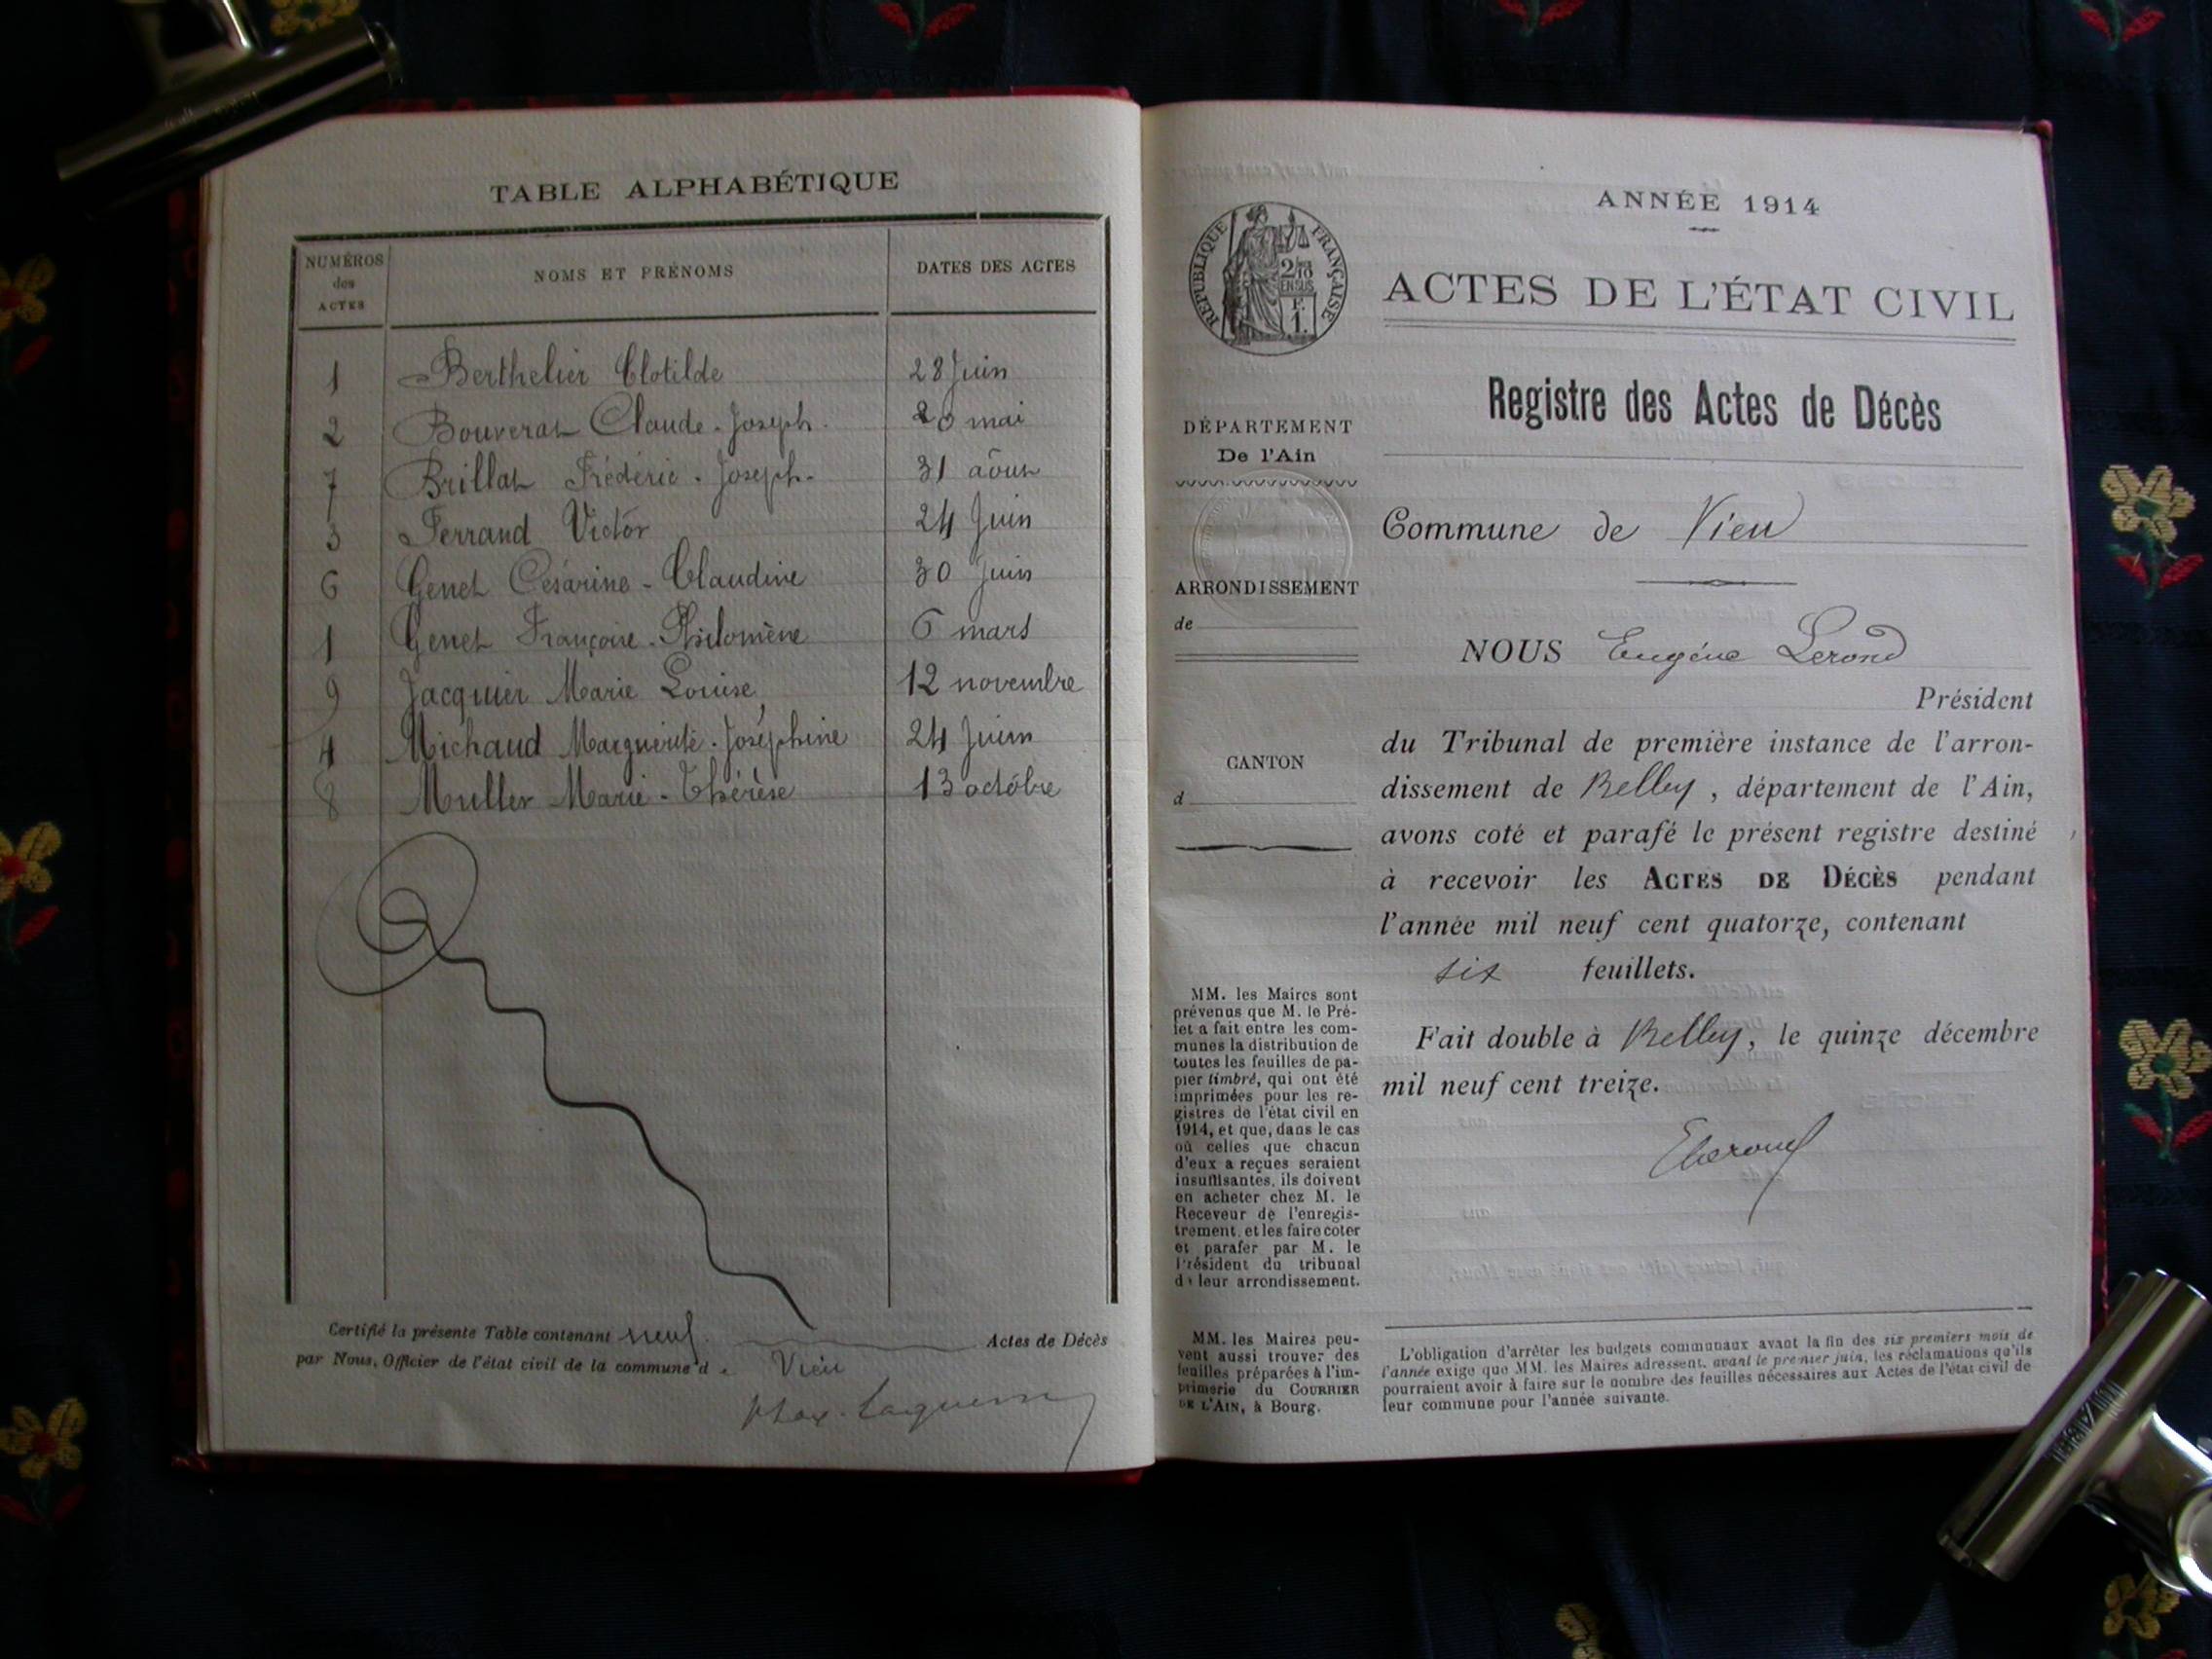 TABLE ALPHABÉTIQUE
NUMÉROS des ACTES
NOMS ET PRÉNOMS
DATES DES ACTES
1 Berthelier Clotilde 28 Juin
2 Bouverat Claude-Joseph. 20 mai
7 Brillat Frédéric-Joseph- 31 aôut
3 Ferrand Victor 24 Juin
6 Genet Césarine-Claudine 30 Juin
1 Genet Françoise-Philomène 6 mars
9 Jacquier Marie Louise, 12 novembre
4 Michaud Marguerite-Joséphine 24 Juin
8 Muller Marie-Thérèse 13 octobre
Certifié la présente Table contenant neuf. Actes de Décès
par Nous, Officier de l'état civil de la commune d e Vieu
ANNÉE 1914
ACTES DE L'ÉTAT CIVIL
Registre des Actes de Décès
RÉPUBLIQUE FRANÇAISE
2/10 EN SUS
F. 1.
DÉPARTEMENT
De l'Ain
ARRONDISSEMENT
de
CANTON
d
MM. les Maires sont
prévenus que M. le Pré-
fet a fait entre les com-
munes la distribution de
toutes les feuilles de pa-
pier timbré, qui ont été
imprimées pour les re-
gistres de l'état civil en
1914, et que, dans le cas
où celles que chacun
d'eux a reçues seraient
insuffisantes, ils doivent
en acheter chez M. le
Receveur de l'enregis-
trement, et les faire coter
et parafer par M. le
Président du tribunal
de leur arrondissement.
MM. les Maires peu-
vent aussi trouver des
feuilles préparées à l'im-
primerie du COURRIER
DE L'AIN, à Bourg.
Commune de Vieu
NOUS Eugène Lerond
Président
du Tribunal de première instance de l'arron-
dissement de Belley, département de l'Ain,
avons coté et parafé le présent registre destiné
à recevoir les ACTES DE DÉCÈS pendant
l'année mil neuf cent quatorze, contenant
six feuillets.
Fait double à Belley, le quinze décembre
mil neuf cent treize.
L'obligation d'arrêter les budgets communaux avant la fin des six premiers mois de
l'année exige que MM. les Maires adressent, avant le premier juin, les réclamations qu'ils
pourraient avoir à faire sur le nombre des feuilles nécessaires aux Actes de l'état civil de
leur commune pour l'année suivante.